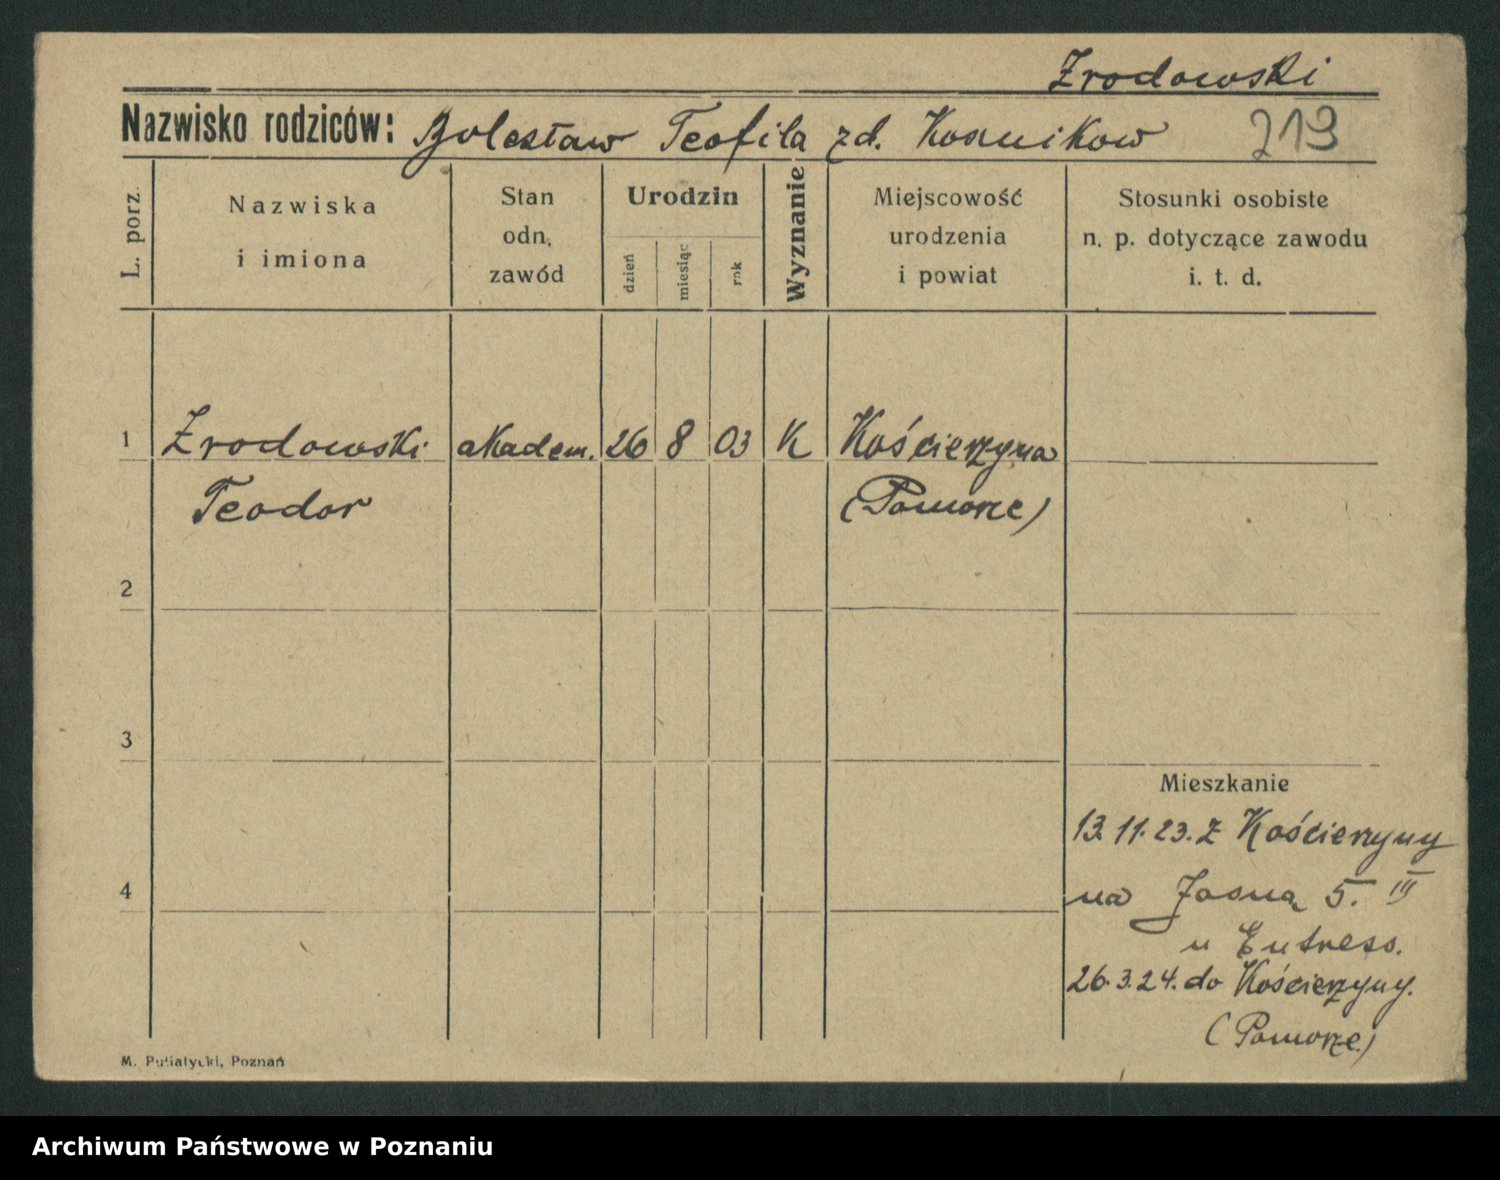 Zrodowski
Nazwisko rodziców: Bolesław Teofila zd. 219
L. porz. Nazwiska i imiona Stan odn. zawód Urodzin dzień miesiąc rok Wyznanie Miejscowość urodzenia i powiat Stosunki osobiste n. p. dotyczące zawodu i. t. d.
1 Zrodowski akadem. 26 8 03 K Kościerzyna
Teodor (Pomorze)
2
3
Mieszkanie
13.11.23. z Kościerzyny
4
na Jasną 5. III
u Entress.
26.3.24. do Kościerzyny.
(Pomorze)
M. Putiatycki, Poznań
Archiwum Państwowe w Poznaniu